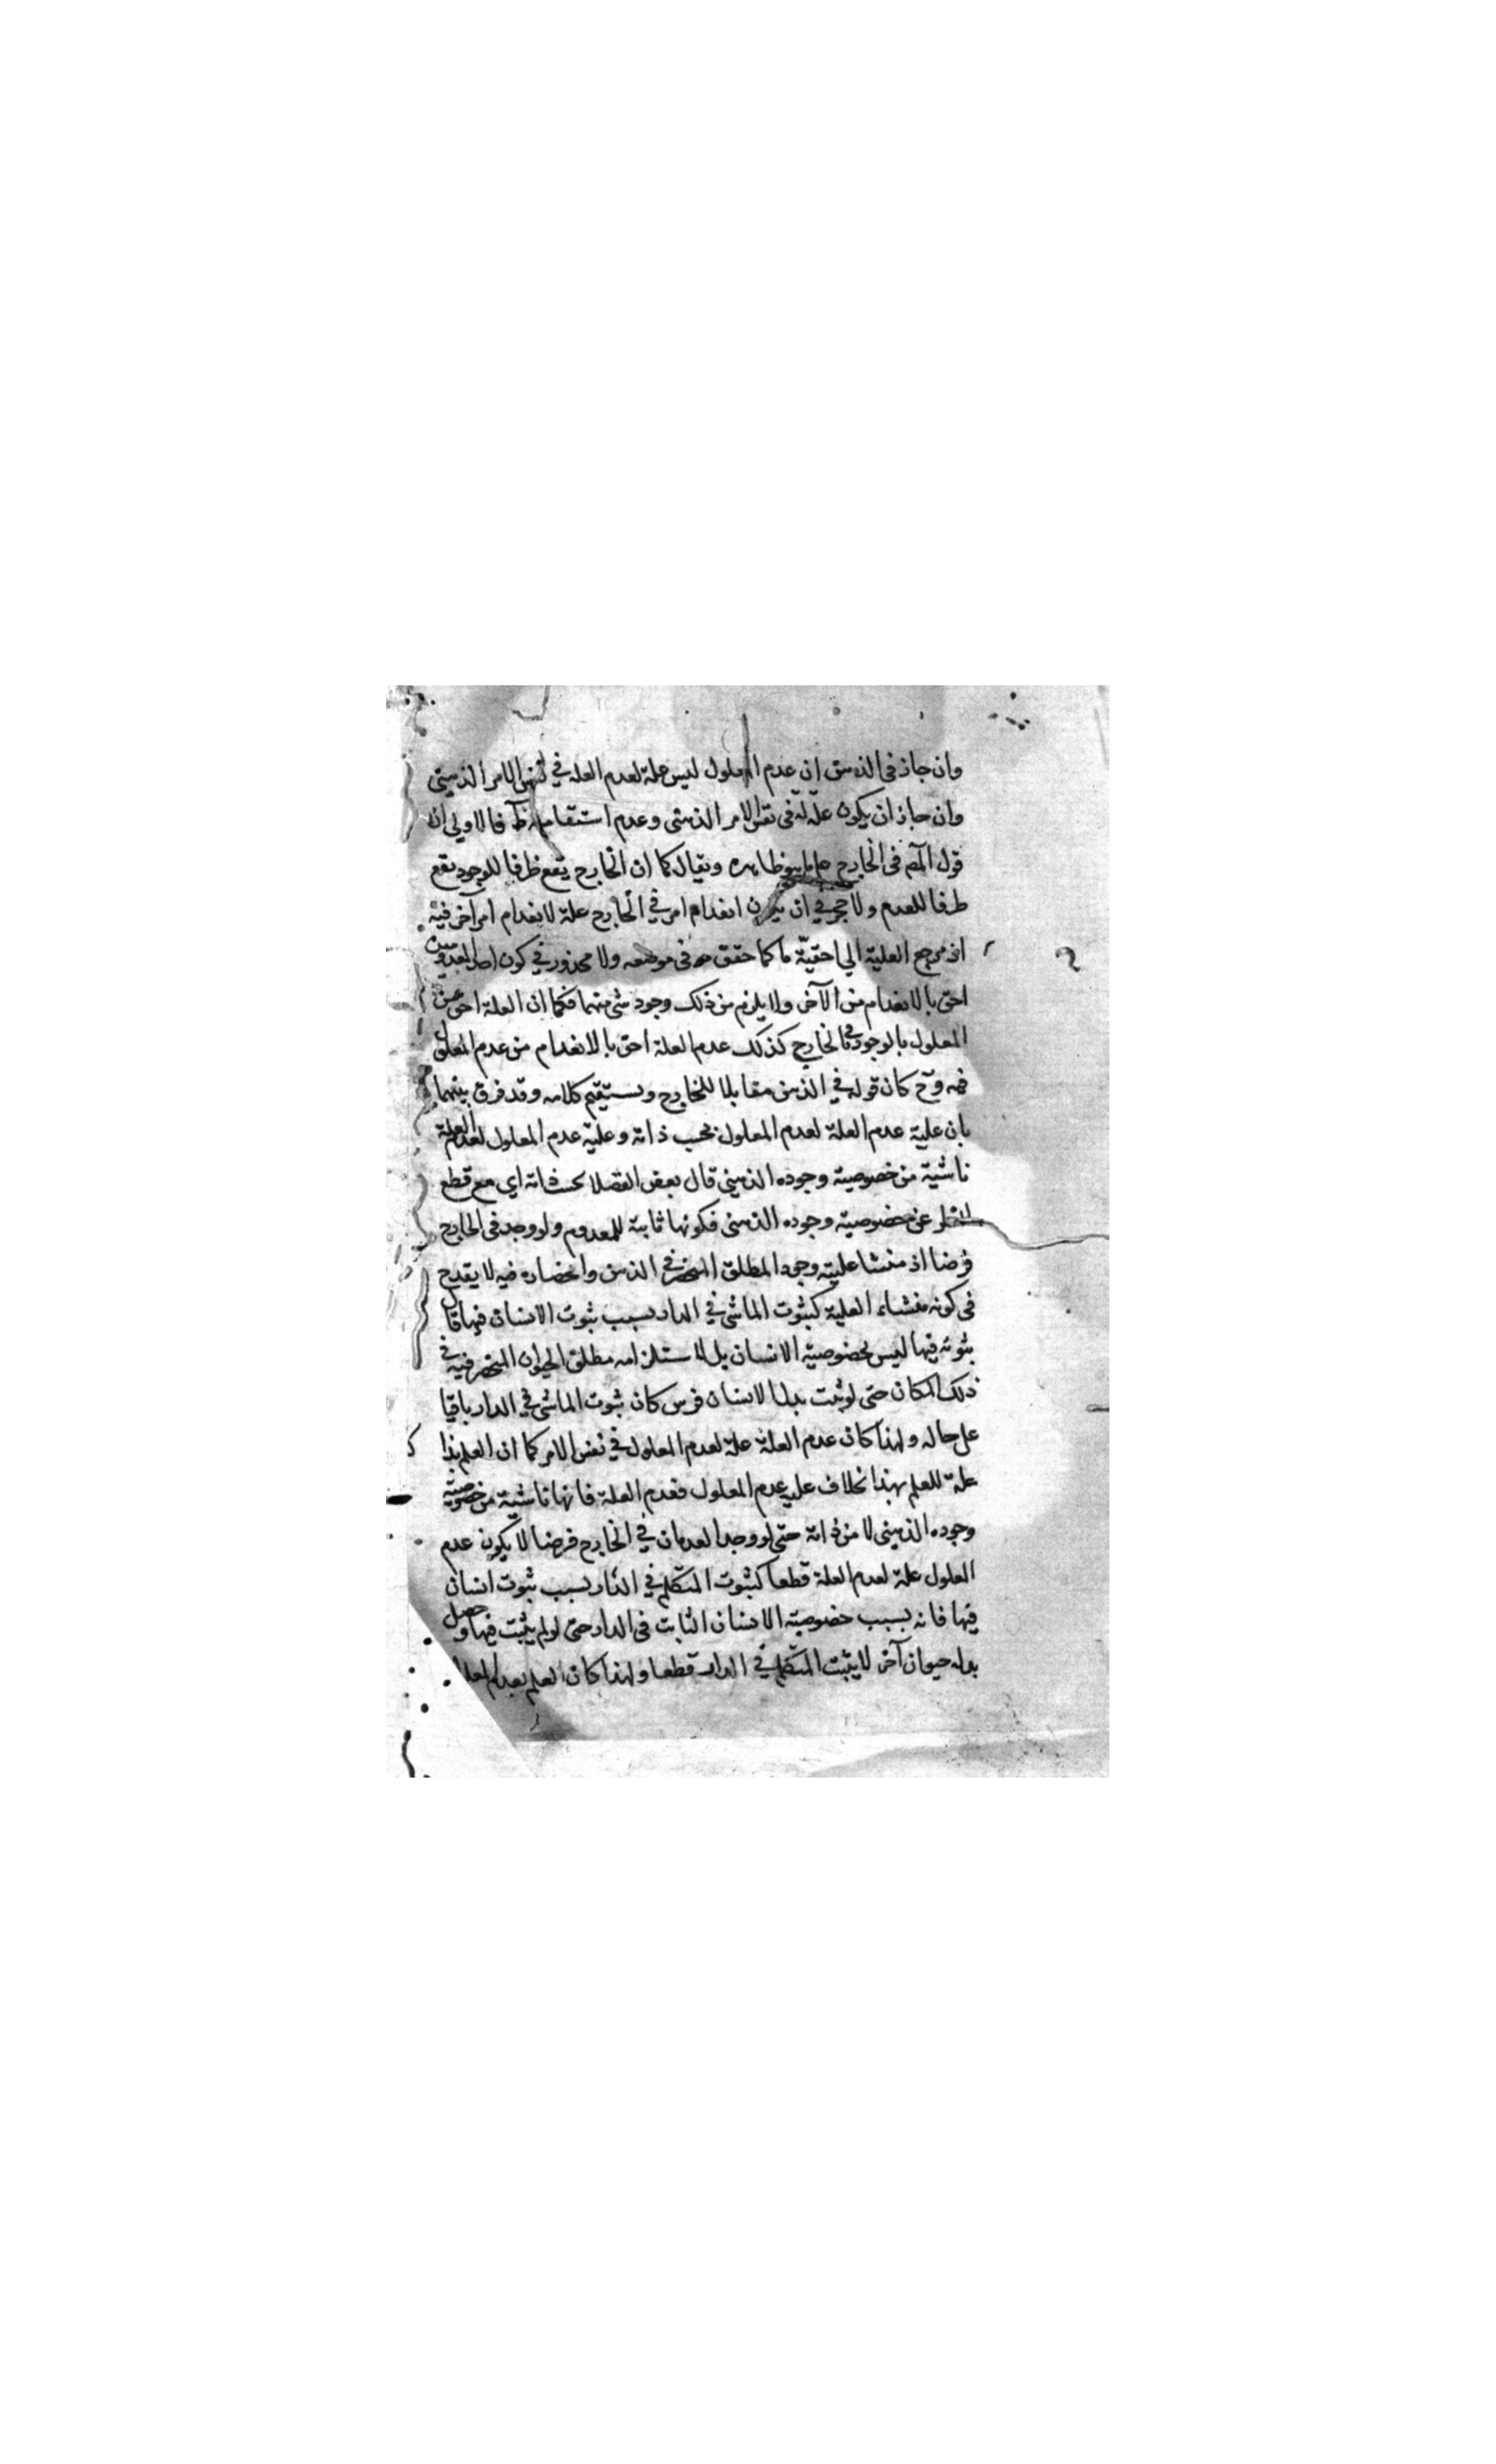 وان جاز فى الذهن ان عدم المعلول ليس علة لعدم العلة في نفس الامر الذهنى
وان جاز ان يكون علة له فى نفس الامر الذهنى وعدم استقامته ظآ فالاولى ان
قول المص فى الخارج على ما هو ظاهره ويقال كما ان الخارج يقع ظرفا للوجود يقع
ظرفا للعدم ولا حجر في ان يكون انعدام امر في الخارج علة لانعدام امر آخر فيه
اذ مرجع العلية الى احقية ما كما حقق فى موضعه ولا محذور في كون احد العدمين
احق بالانعدام من الآخر ولا يلزم من ذلك وجود شئ منهما فكما ان العلة احق من
المعلول بالوجود فى الخارج كذلك عدم العلة احق بالانعدام من عدم المعلول
فيه وح كان قوله في الذهن مقابلا للخارج ويستقيم كلامه وقد فرق بينهما
بان علية عدم العلة لعدم المعلول بحسب ذاته وعلية عدم المعلول لعدم العلة
ناشية من خصوصية وجوده الذهني قال بعض الفضلا بحسب ذاته اي مع قطع
النظر عن خصوصية وجوده الذهنى فكونها ثابتة للمعدوم ولو وجد فى الخارج
فرضا اذ منشا عليته وجود المطلق المنحصر في الذهن وانحصاره فيه لا يقدح
فى كونه منشاء العلية كثبوت الماشى في الدار بسبب ثبوت الانسان فيها قال
ثبوته فيها ليس لخصوصية الانسان بل لاستلزامه مطلق الحيوان المنحصر فيه في
ذلك المكان حتى لو ثبت بدل الانسان فرس كان ثبوت الماشى في الدار باقيا
على حاله ولهذا كان عدم العلة علة لعدم المعلول في نفس الامر كما ان العلم بذا
علة للعلم بهذا بخلاف علية عدم المعلول فعدم العلة فانها ناشية من خصوصية
وجوده الذهنى لا من ذاته حتى لو وجد العدمان في الخارج فرضا لا يكون عدم
المعلول علة لعدم العلة قطعا كثبوت المتكلم في الدار بسبب ثبوت انسان
فيها فانه بسبب خصوصية الانسان الثابت فى الدار حتى لو لم يثبت فيها وحصل
بدله حيوان آخر لا يثبت المتكلم في الدار قطعا ولهذا كان العلم بعدم